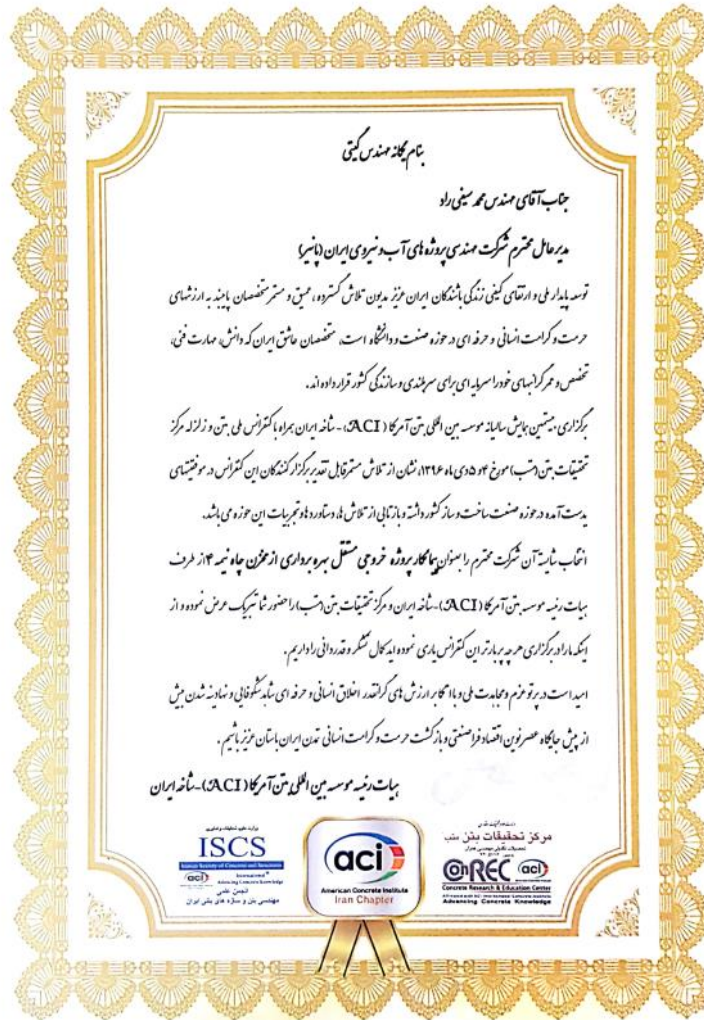 بنام یگانه مهندس گیتی
جناب آقای مهندس محمد سیفی راد
مدیر عامل محترم شرکت مهندسی پروژه های آب و نیروی ایران (پانیر)
توسعه پایدار ملی و ارتقای کیفی زندگی باشندگان ایران عزیز مدیون تلاش گسترده، عمیق و مستمر متخصصان پایبند به ارزشهای
حرمت و کرامت انسانی و حرفه ای در حوزه صنعت و دانشگاه است، متخصصان عاشق ایران که دانش، مهارت فنی،
تخصص و عمر گرانبهای خود را سرمایه ای برای سربلندی و سازندگی کشور قرار داده اند.
برگزاری بیستمین همایش سالیانه موسسه بین المللی بتن آمریکا (ACI) - شاخه ایران همراه با کنفرانس ملی بتن و زلزله مرکز
تحقیقات بتن (متب) مورخ ۴ و ۵ دی ماه ۱۳۹۶، نشان از تلاش مستمر قابل تقدیر برگزار کنندگان این کنفرانس در موفقیتهای
بدست آمده در حوزه صنعت ساخت و ساز کشور داشته و بازتابی از تلاش ها، دستاوردها و تجربیات این حوزه می باشد.
انتخاب شایسته آن شرکت محترم را بعنوان پیمانکار پروژه خروجی مستقل بهره برداری از مخزن چاه نیمه ۴ از طرف
هیات رئیسه موسسه بتن آمریکا (ACI) - شاخه ایران و مرکز تحقیقات بتن (متب) را حضور شما تبریک عرض نموده و از
اینکه ما را در برگزاری هر چه پربارتر این کنفرانس یاری نموده اید کمال تشکر و قدردانی را داریم.
امید است در پرتو عزم و مجاهدت ملی و با اتکا بر ارزش های گرانقدر اخلاق انسانی و حرفه ای شاهد شکوفائی و نهادینه شدن بیش
از پیش جایگاه عصر نوین اقتصاد فراصنعتی و بازگشت حرمت و کرامت انسانی تمدن ایران باستان عزیز باشیم.
هیات رئیسه موسسه بین المللی بتن آمریکا (ACI) - شاخه ایران
وزارت علوم تحقیقات و فناوری
ISCS
Iranian Society of Concrete and Structures
aci
International
Advancing Concrete Knowledge
انجمن علمی
مهندسی بتن و سازه های بتنی ایران
aci
American Concrete Institute
Iran Chapter
مرکز تحقیقات بتن متب
ConREC aci
Concrete Research & Education Center
Advancing Concrete Knowledge